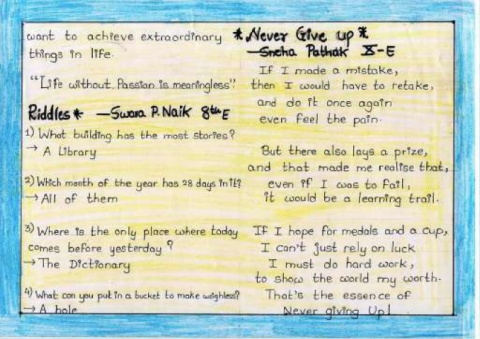 want to achieve extraordinary
things in life.
"Life without Passion is meaningless".
Riddles* —Swara P. Naik 8th E
1) What building has the most stories?
→ A Library
2) Which month of the year has 28 days in it?
→ All of them
3) Where is the only place where today
comes before yesterday?
→ The Dictionary
4) What can you put in a bucket to make weighless?
→ A hole
*Never Give up*
—Sneha Pathak X-E
If I made a mistake,
then I would have to retake,
and do it once again
even feel the pain.
But there also lays a prize,
and that made me realise that,
even if I was to fail,
it would be a learning trail.
If I hope for medals and a cup,
I can't just rely on luck
I must do hard work,
to show the world my worth.
That's the essence of
Never giving Up!